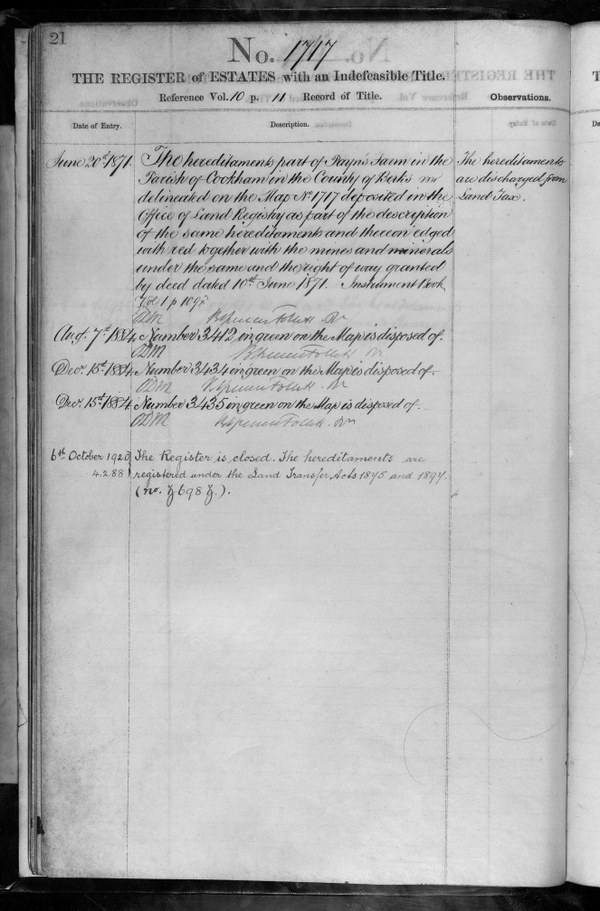 21
No. 1717
THE REGISTER of ESTATES with an Indefeasible Title.
Reference Vol. 10 p. 11 Record of Title.
Observations.
Date of Entry.
Description.
June 20th 1871. The hereditaments part of Payn's Farm in the
Parish of Cookham in the County of Berks
delineated on the Map No. 1717 deposited in the
Office of Land Registry as part of the description
of the same hereditaments and thereon edged
with red together with the mines and minerals
under the same and the right of way granted
by deed dated 10th June 1871. Instrument Book
Vol 1 p
The hereditaments
are discharged from
Land Tax.
Augt. 7th 1884. Number 3412 in green on the Map is disposed of.
Decr. 15th 1884. Number 3434 in green on the Map is disposed of.
Decr. 15th 1884. Number 3435 in green on the Map is disposed of.
6th October 1920 The Register is closed. The hereditaments are
4288 registered under the Land Transfer Acts 1875 and 1897.
(no.